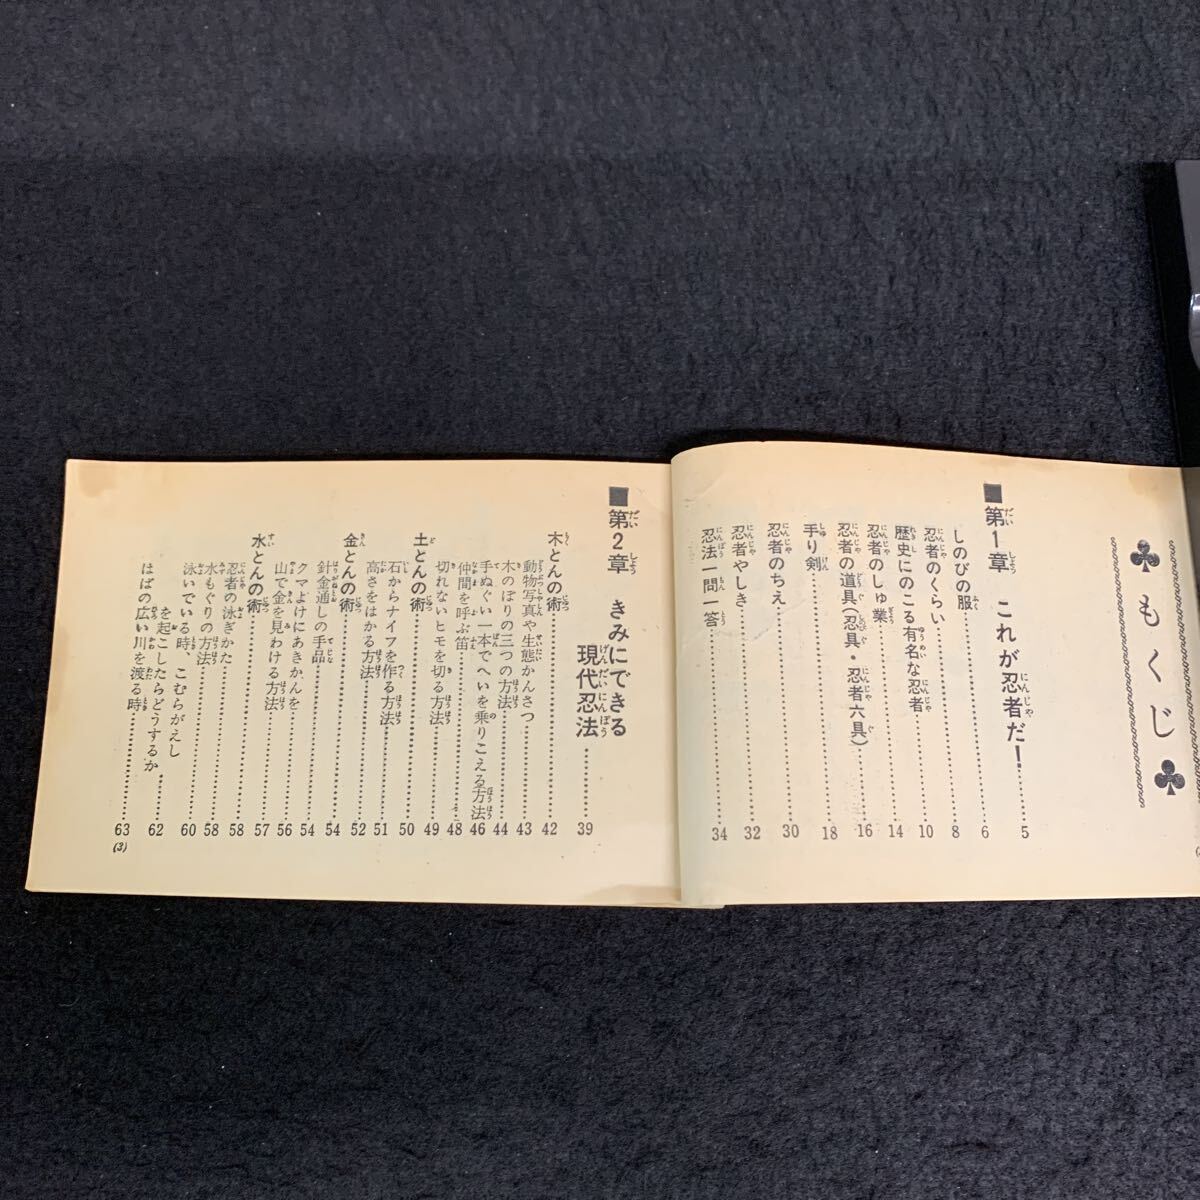 ♣もくじ♣
■第1章 これが忍者だ!……5
しのびの服……6
忍者のくらい……8
歴史にのこる有名な忍者……10
忍者のしゅ業……14
忍者の道具(忍具・忍者六具)……16
手り剣……18
忍者のちえ……30
忍者やしき……32
忍法一問一答……34
■第2章 きみにできる
現代忍法……39
木とんの術……42
動物写真や生態かんさつ……43
木のぼりの三つの方法……44
手ぬぐい一本でへいを乗りこえる方法……46
仲間を呼ぶ笛……48
切れないヒモを切る方法……49
土とんの術……50
石からナイフを作る方法……51
高さをはかる方法……52
金とんの術……54
針金通しの手品……54
クマよけにあきかんを……56
山で金を見わける方法……57
水とんの術……58
忍者の泳ぎかた……58
水もぐりの方法……60
泳いでいる時、こむらがえし
を起こしたらどうするか……62
はばの広い川を渡る時……63
(3)